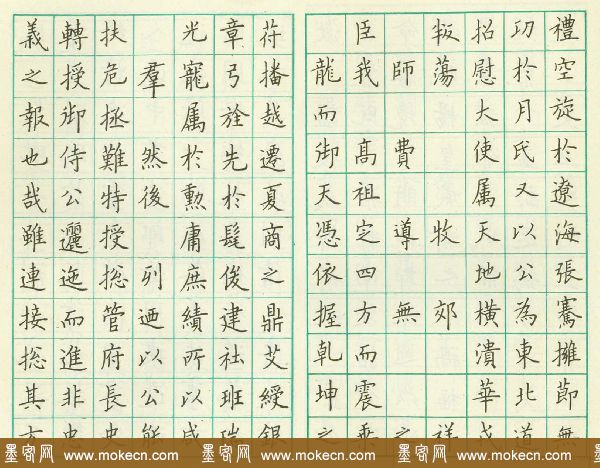 禮空旋於遼海張騫擁節無
功於月氏又以公為東北道
招慰大使属天地橫潰華戎
板蕩牧郊祥
師費導無之
臣我高祖定四方而震乘
龍而御天憑依握乾坤之
苻播越遷夏商之鼎艾綬銀
章弓旌先於髦俊建社班瑞
光寵属於勲庸庶績所以咸
羣然後列迺以公能
扶危拯難特授総管府長史
轉授御侍公邐迤而進非忠
義之報也哉雖連接総其大
墨客网 www.mokecn.com 墨客网 www.mokecn.com 墨客网 www.mokecn.com